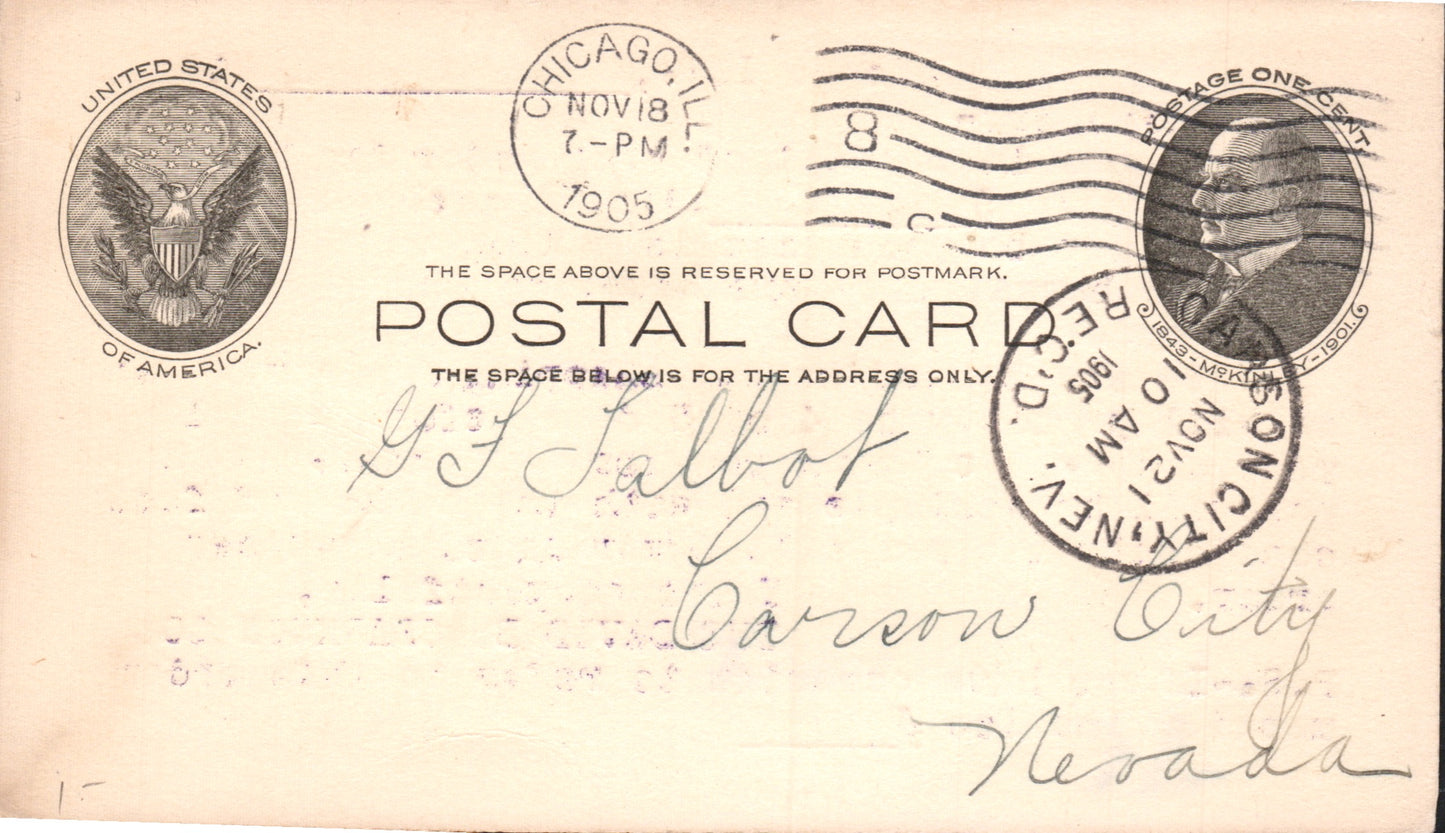 UNITED STATES
OF AMERICA.
CHICAGO, ILL.
NOV 18
7 - PM
1905
8
C
POSTAGE ONE CENT.
1843-McKINLEY-1901.
THE SPACE ABOVE IS RESERVED FOR POSTMARK.
POSTAL CARD.
THE SPACE BELOW IS FOR THE ADDRESS ONLY.
CARSON CITY, NEV.
NOV 21
10 AM
1905
REC'D.
G F Talbot
Carson City
Nevada